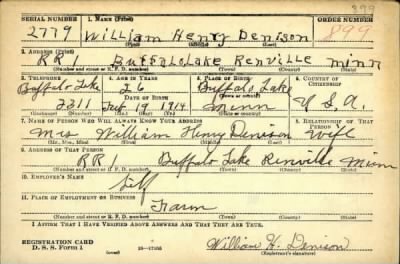 399
SERIAL NUMBER 1. NAME (Print) ORDER NUMBER
2779 William Henry Denison 899
2. ADDRESS (Print)
RR1 Buffalo Lake Renville Minn
(Number and street or R. F. D. number) (Town) (County) (State)
3. TELEPHONE 4. AGE IN YEARS 5. PLACE OF BIRTH 6. COUNTRY OF CITIZENSHIP
Buffalo Lake 26 Buffalo Lake
DATE OF BIRTH (Town or county)
2211 Feb 19 1914 Minn U.S.A.
(Exchange) (Number) (Mo.) (Day) (Yr.) (State or country)
7. NAME OF PERSON WHO WILL ALWAYS KNOW YOUR ADDRESS 8. RELATIONSHIP OF THAT PERSON
Mrs William Henry Denison Wife
(Mr., Mrs., Miss) (First) (Middle) (Last)
9. ADDRESS OF THAT PERSON
RR1 Buffalo Lake Renville Minn
(Number and street or R. F. D. number) (Town) (County) (State)
10. EMPLOYER'S NAME
Self
11. PLACE OF EMPLOYMENT OR BUSINESS
Farm
(Number and street or R. F. D. number) (Town) (County) (State)
I AFFIRM THAT I HAVE VERIFIED ABOVE ANSWERS AND THAT THEY ARE TRUE.
REGISTRATION CARD
D. S. S. Form 1 William H. Denison
(Registrant's signature)